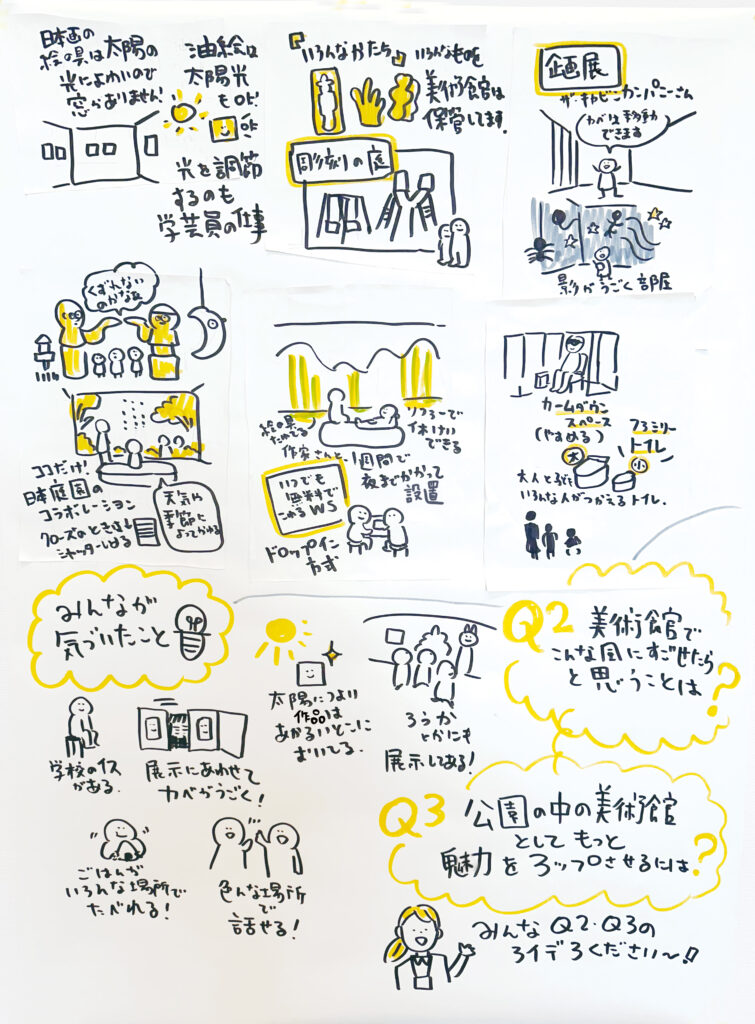 日本画の
絵の具は太陽の
光によわいので
窓がありません!
油絵は
太陽光
もOK!
OK
光を調節
するのも
学芸員の仕事
『いろんなかたち』いろんなものを
美術館は
保管してます.
彫刻の庭
企画展
ザ・キャビンカンパニーさん
かべは移動
できます
影がうごく部屋
くずれない
のかなぁ
ココだけ!
日本庭園の
コラボレーション
クローズのときは
シャッターしめる
天気や
季節に
よってかわる
ソファーで
休けい
できる
作家さんと、1週間で
夜までかかって
設置
いつでも
無料で
WS
ドロップイン
カームダウン
スペース
(やすめる)
ファミリー
トイレ
大
小
大人と子ども
いろんな人がつかえるトイレ.
みんなが
気づいたこと
学校のイス
がある.
展示にあわせて
カベがうごく!
太陽につよい
作品は
あかるいとこに
おいてる.
ろうか
とかにも
展示してある!
ごはんが
いろんな場所で
たべれる!
色んな場所
で
話せる!
Q2 美術館で
こんな風にすごせたら
と思うことは?
Q3 公園の中の美術館
として もっと
魅力をアップさせるには?
みんなQ2・Q3の
アイデアください〜!!